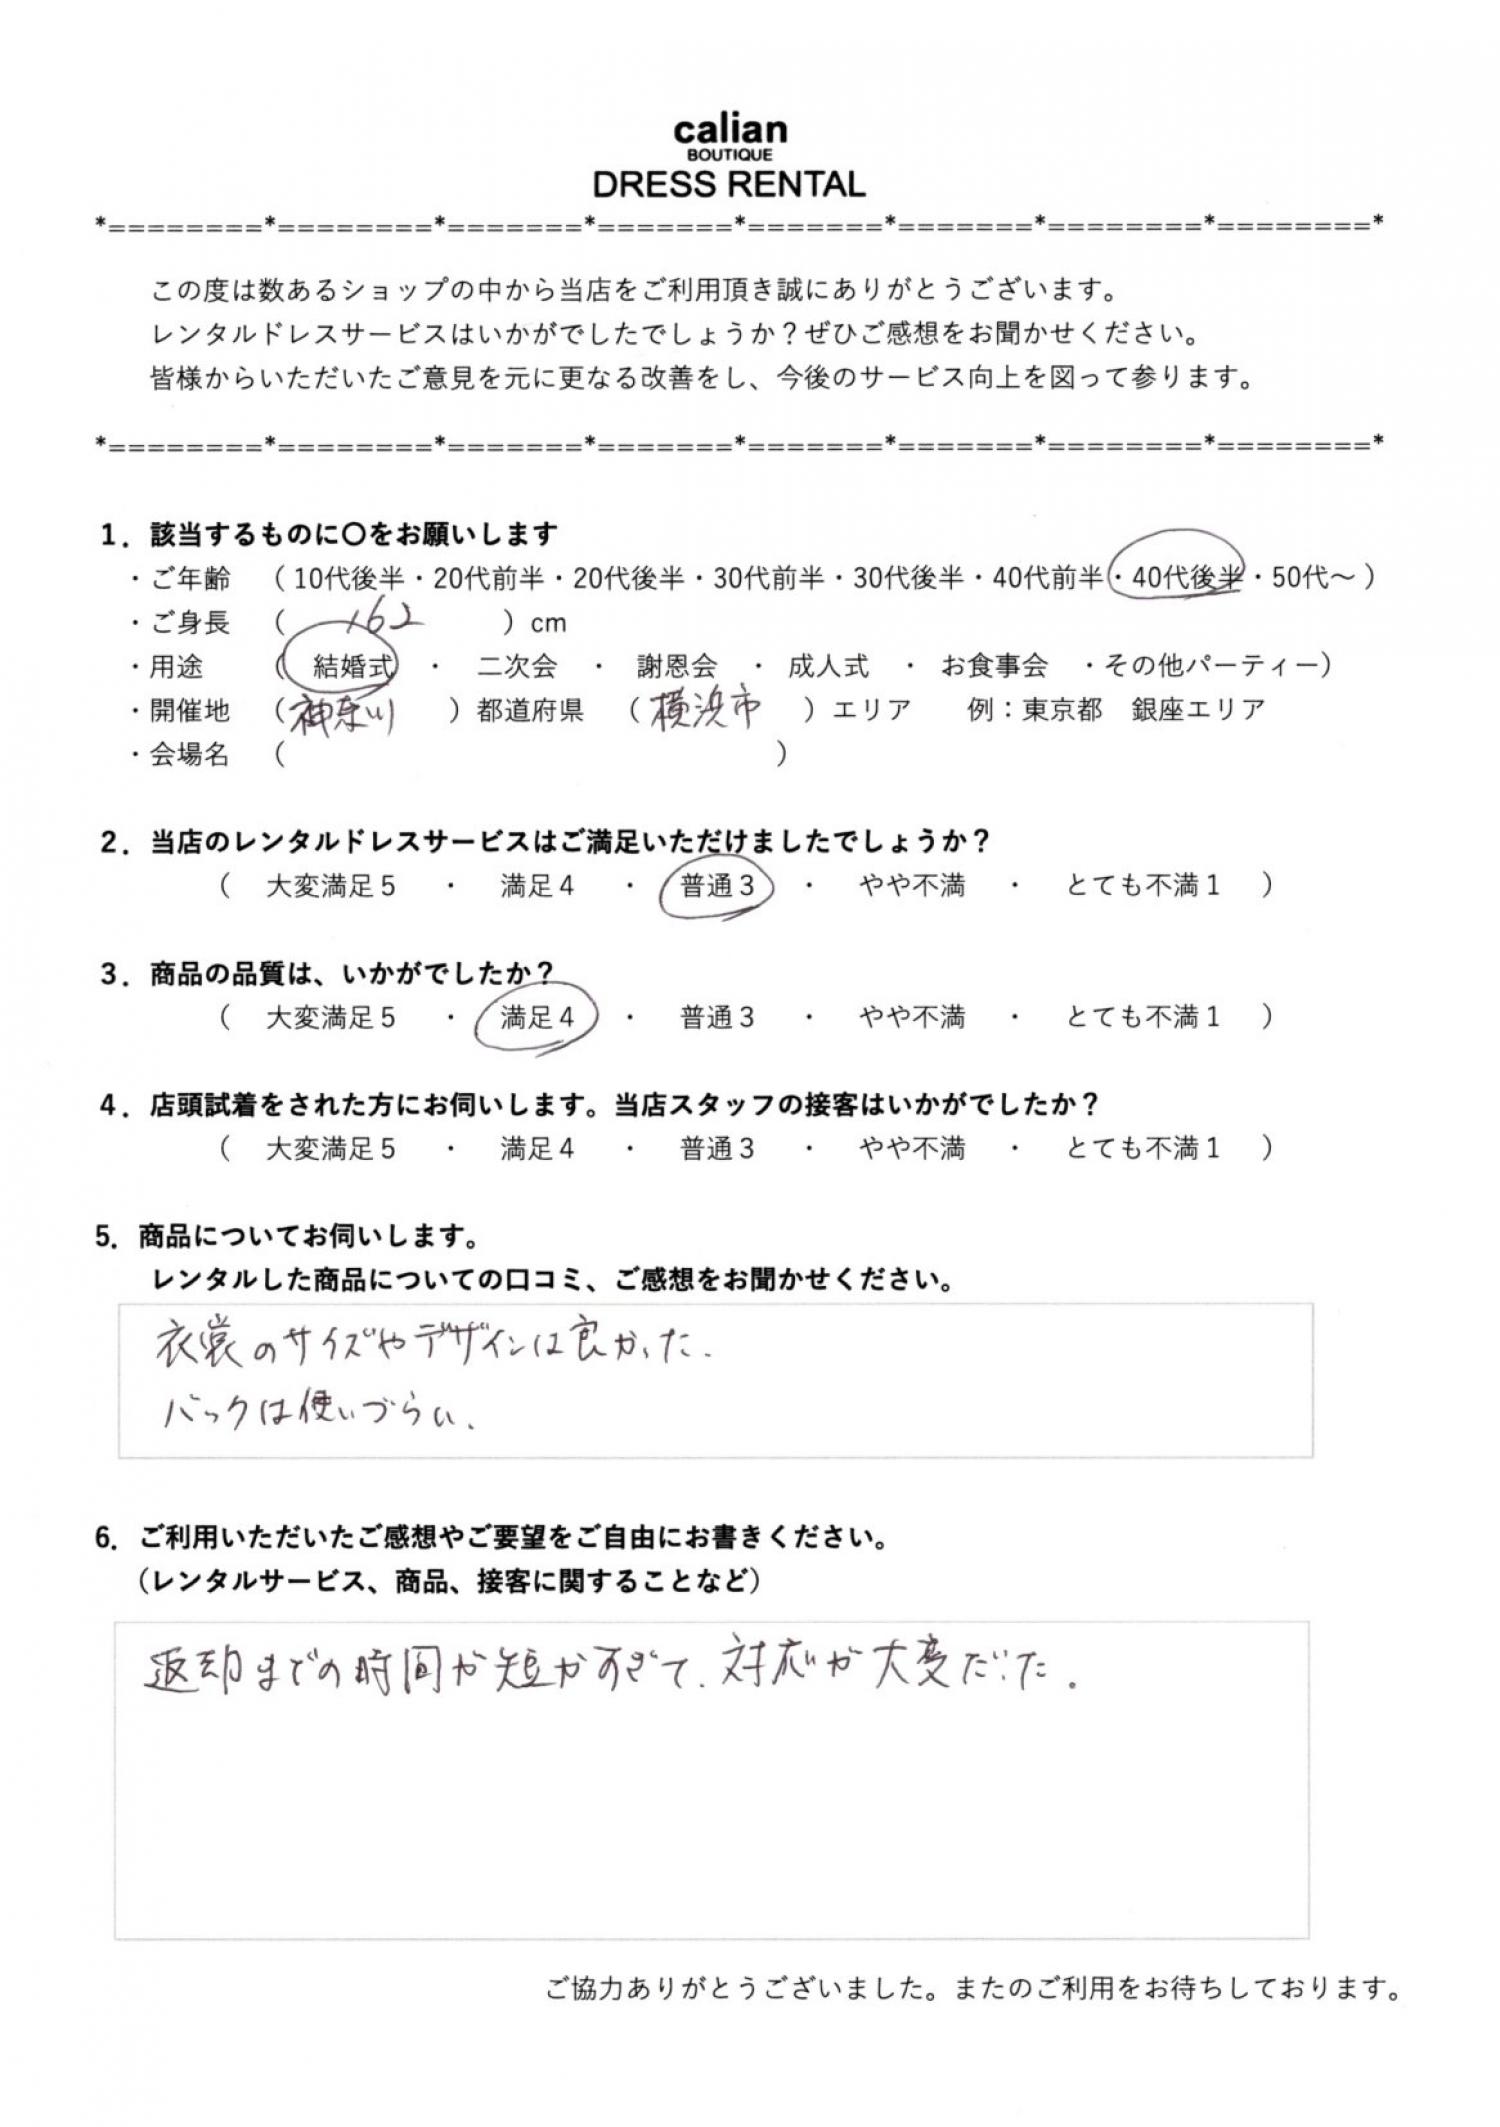 calian
BOUTIQUE
DRESS RENTAL
*=========*=========*========*========*========*========*=========*=========*
この度は数あるショップの中から当店をご利用頂き誠にありがとうございます。
レンタルドレスサービスはいかがでしたでしょうか？ぜひご感想をお聞かせください。
皆様からいただいたご意見を元に更なる改善をし、今後のサービス向上を図って参ります。
*=========*=========*========*========*========*========*=========*=========*
1．該当するものに〇をお願いします
・ご年齢 （ 10代後半・20代前半・20代後半・30代前半・30代後半・40代前半・40代後半・50代～ ）
・ご身長 （ 162 ）cm
・用途 （ 結婚式 ・ 二次会 ・ 謝恩会 ・ 成人式 ・ お食事会 ・その他パーティー）
・開催地 （神奈川 ）都道府県 （ 横浜市 ）エリア 例：東京都 銀座エリア
・会場名 （ ）
2．当店のレンタルドレスサービスはご満足いただけましたでしょうか？
（ 大変満足５ ・ 満足４ ・ 普通３ ・ やや不満 ・ とても不満１ ）
3．商品の品質は、いかがでしたか？
（ 大変満足５ ・ 満足４ ・ 普通３ ・ やや不満 ・ とても不満１ ）
4．店頭試着をされた方にお伺いします。当店スタッフの接客はいかがでしたか？
（ 大変満足５ ・ 満足４ ・ 普通３ ・ やや不満 ・ とても不満１ ）
5．商品についてお伺いします。
レンタルした商品についての口コミ、ご感想をお聞かせください。
衣裳のサイズやデザインは良かった.
バックは使いづらい.
6．ご利用いただいたご感想やご要望をご自由にお書きください。
（レンタルサービス、商品、接客に関することなど）
返却までの時間が短かすぎて、対応が大変だった。
ご協力ありがとうございました。またのご利用をお待ちしております。